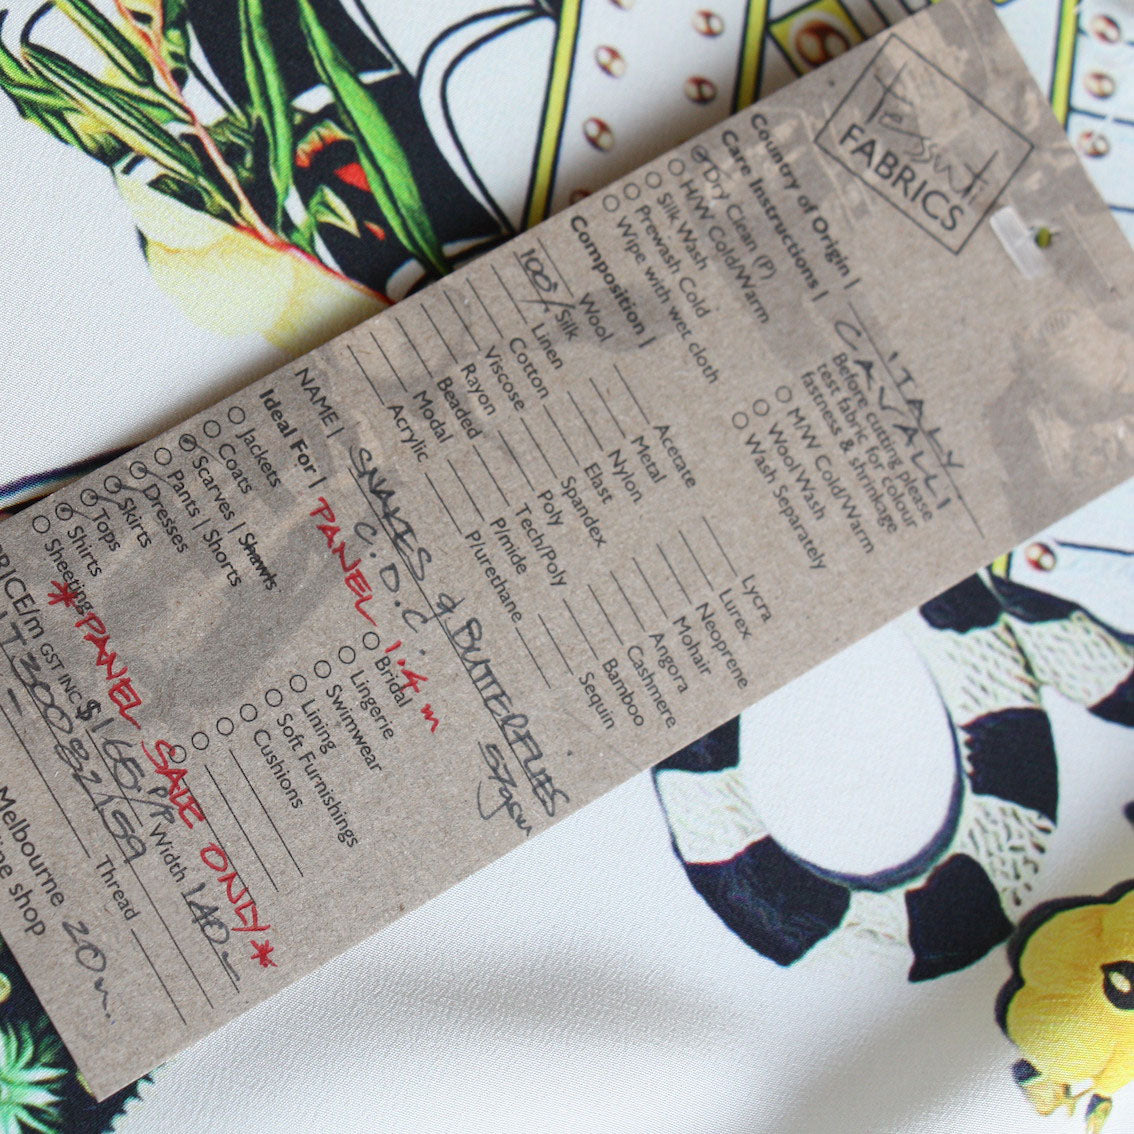 Tessuti
FABRICS
Country of Origin | ITALY
CAVALLI
Care Instructions |
Before cutting please
test fabric for colour
fastness & shrinkage
Dry Clean (P)
H/W Cold/Warm
Silk Wash
Prewash Cold
Wipe with wet cloth
M/W Cold/Warm
Wool Wash
Wash Separately
Composition |
Wool
100% Silk
Linen
Cotton
Viscose
Rayon
Beaded
Modal
Acrylic
Acetate
Metal
Nylon
Elast
Spandex
Poly
Tech/Poly
P/mide
P/urethane
Lycra
Lurex
Neoprene
Mohair
Angora
Cashmere
Bamboo
Sequin
NAME | SNAKES & BUTTERFLIES
C.D.C. 57gsm
Ideal For | PANEL 1.4m
Jackets
Coats
Scarves | Shawls
Pants | Shorts
Dresses
Skirts
Tops
Shirts
Sheeting
Bridal
Lingerie
Swimwear
Lining
Soft Furnishings
Cushions
*PANEL SALE ONLY*
RICE/m GST INC $165/PP Width 140
LT30082/159 Thread
Melbourne 20m
ne shop